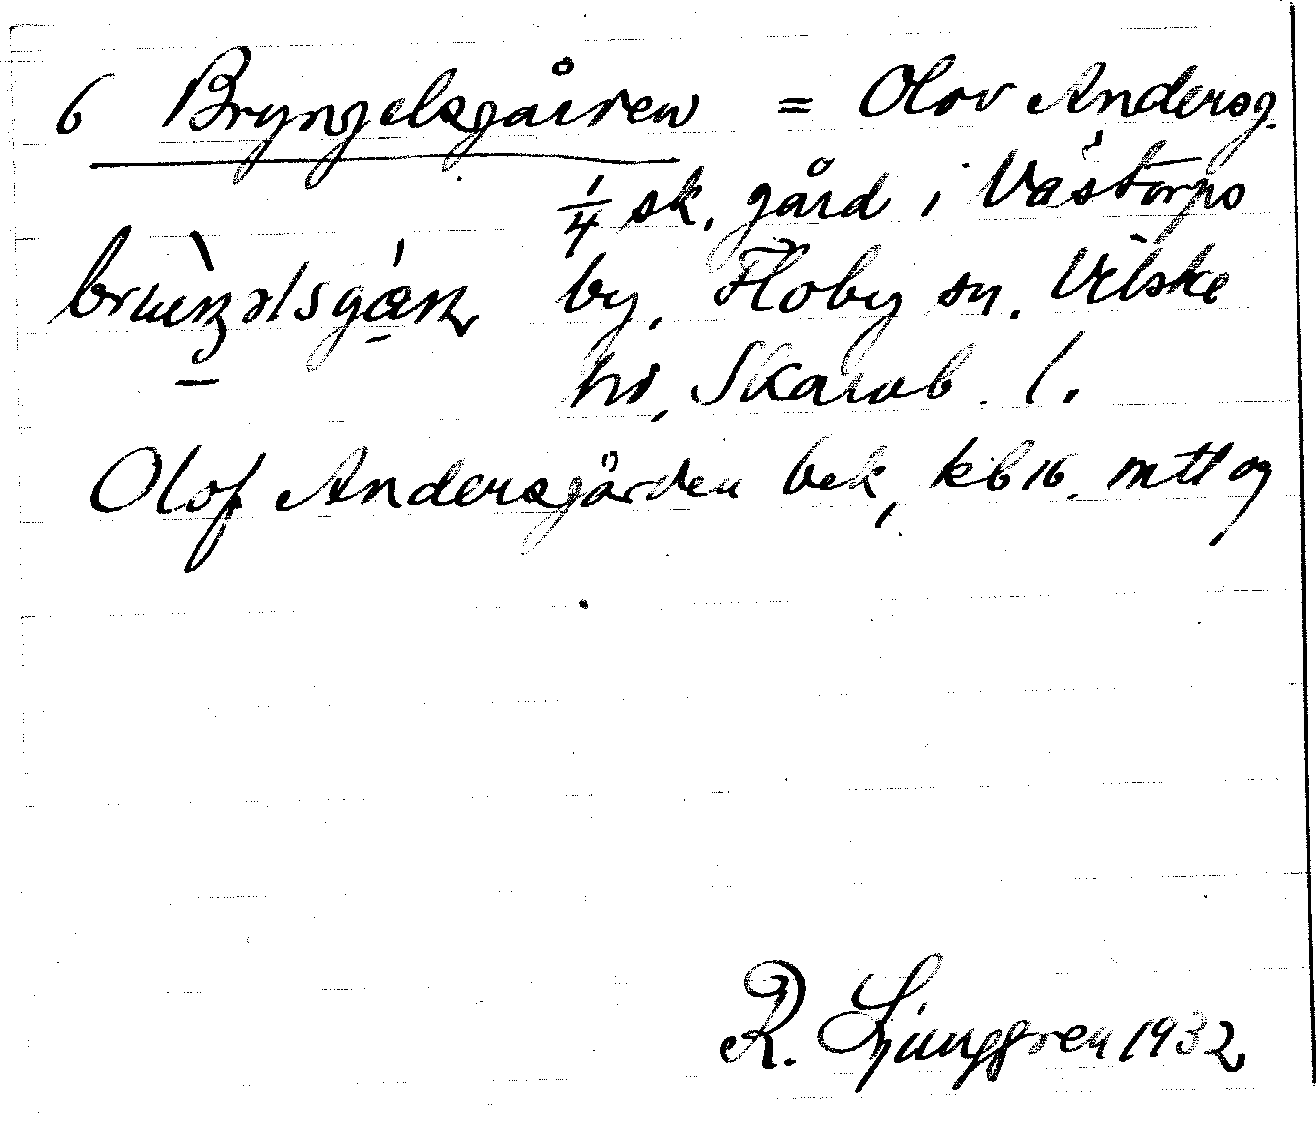 6 Bryngelsgården = Olov Andersg.
1/4 sk. gård i Västorps
by, Floby sn. Vilske
hd, Skarab. l.
Olof Andersgården bek, kb 16. mtl og
R. Ljunggren 1932